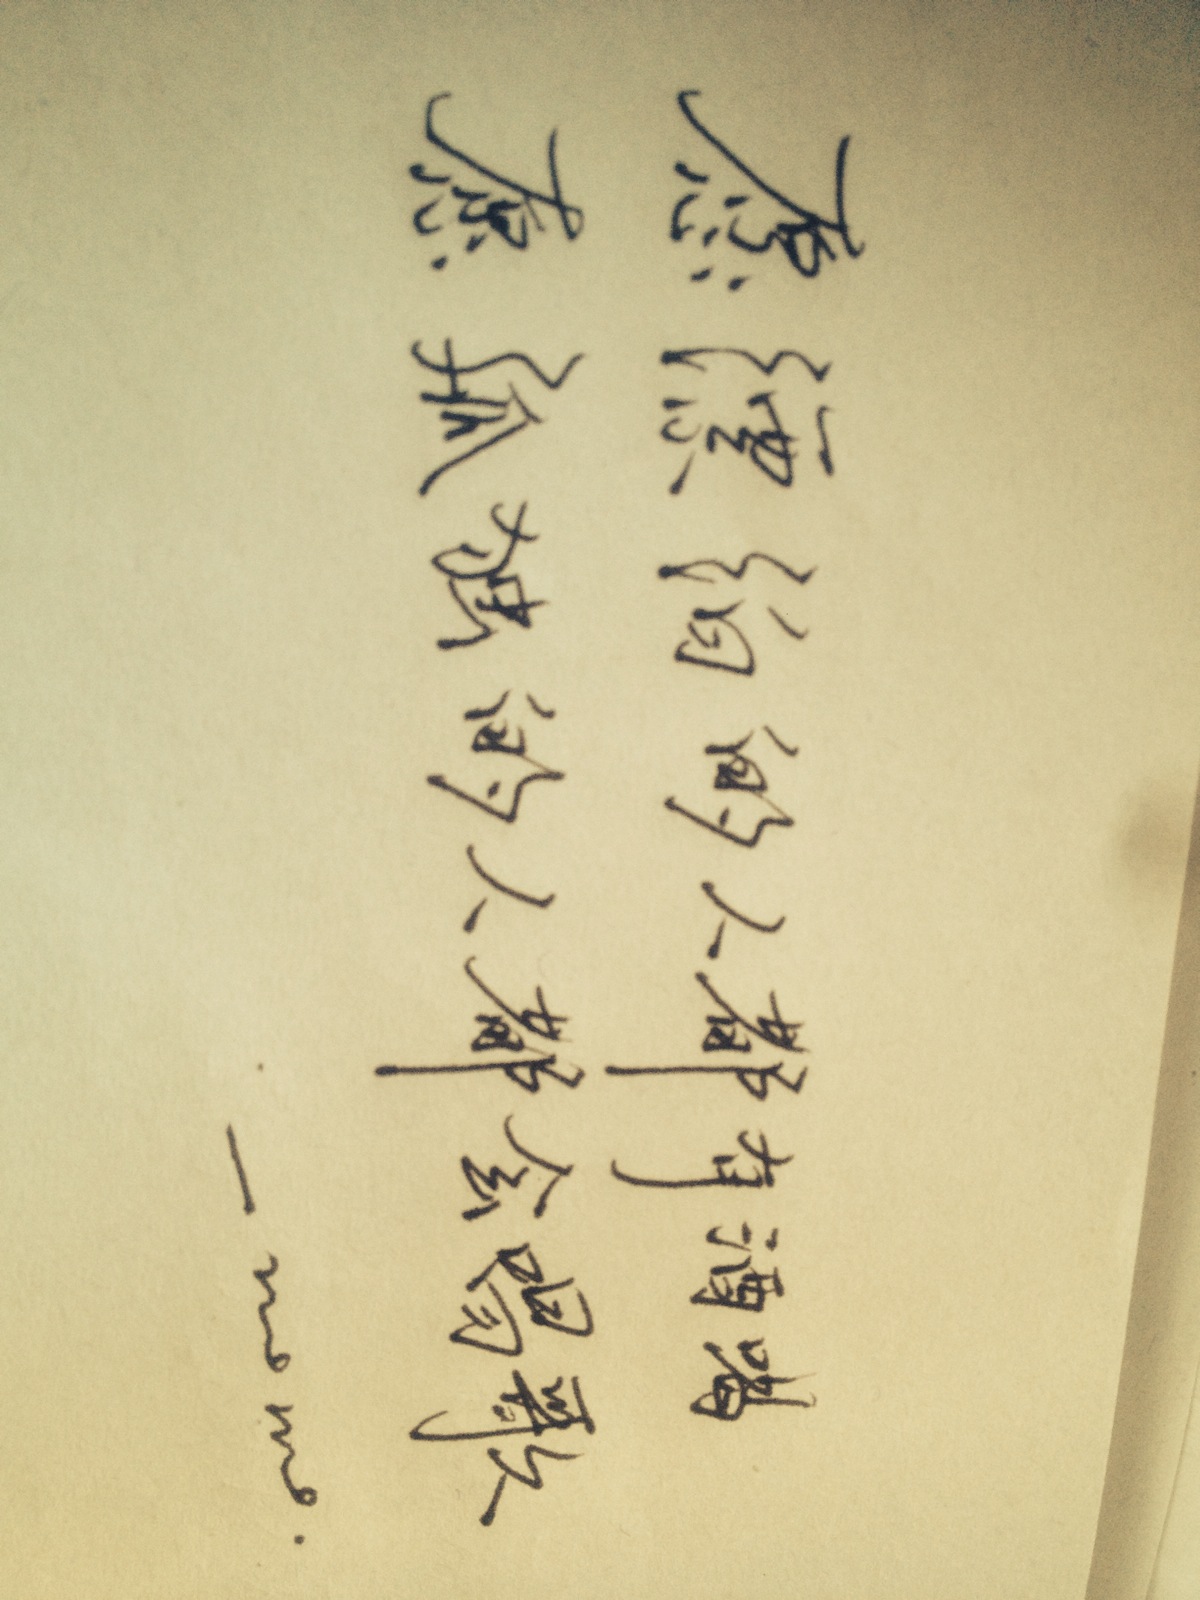 愈缠绵的人都有酒喝
愈孤独的人都会唱歌
—momo.